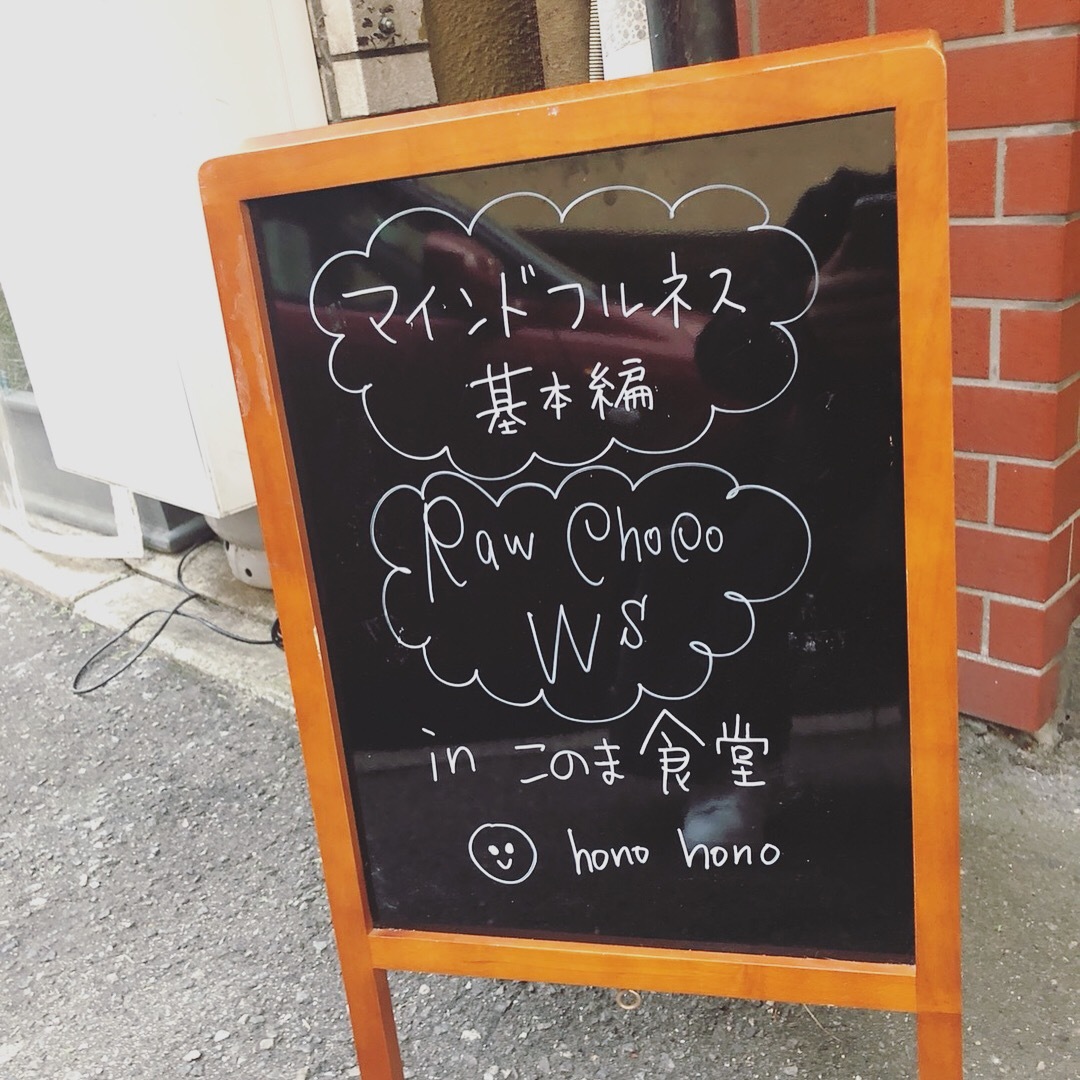 マインドフルネス
基本編
Raw Choco
WS
in このま食堂
hono hono